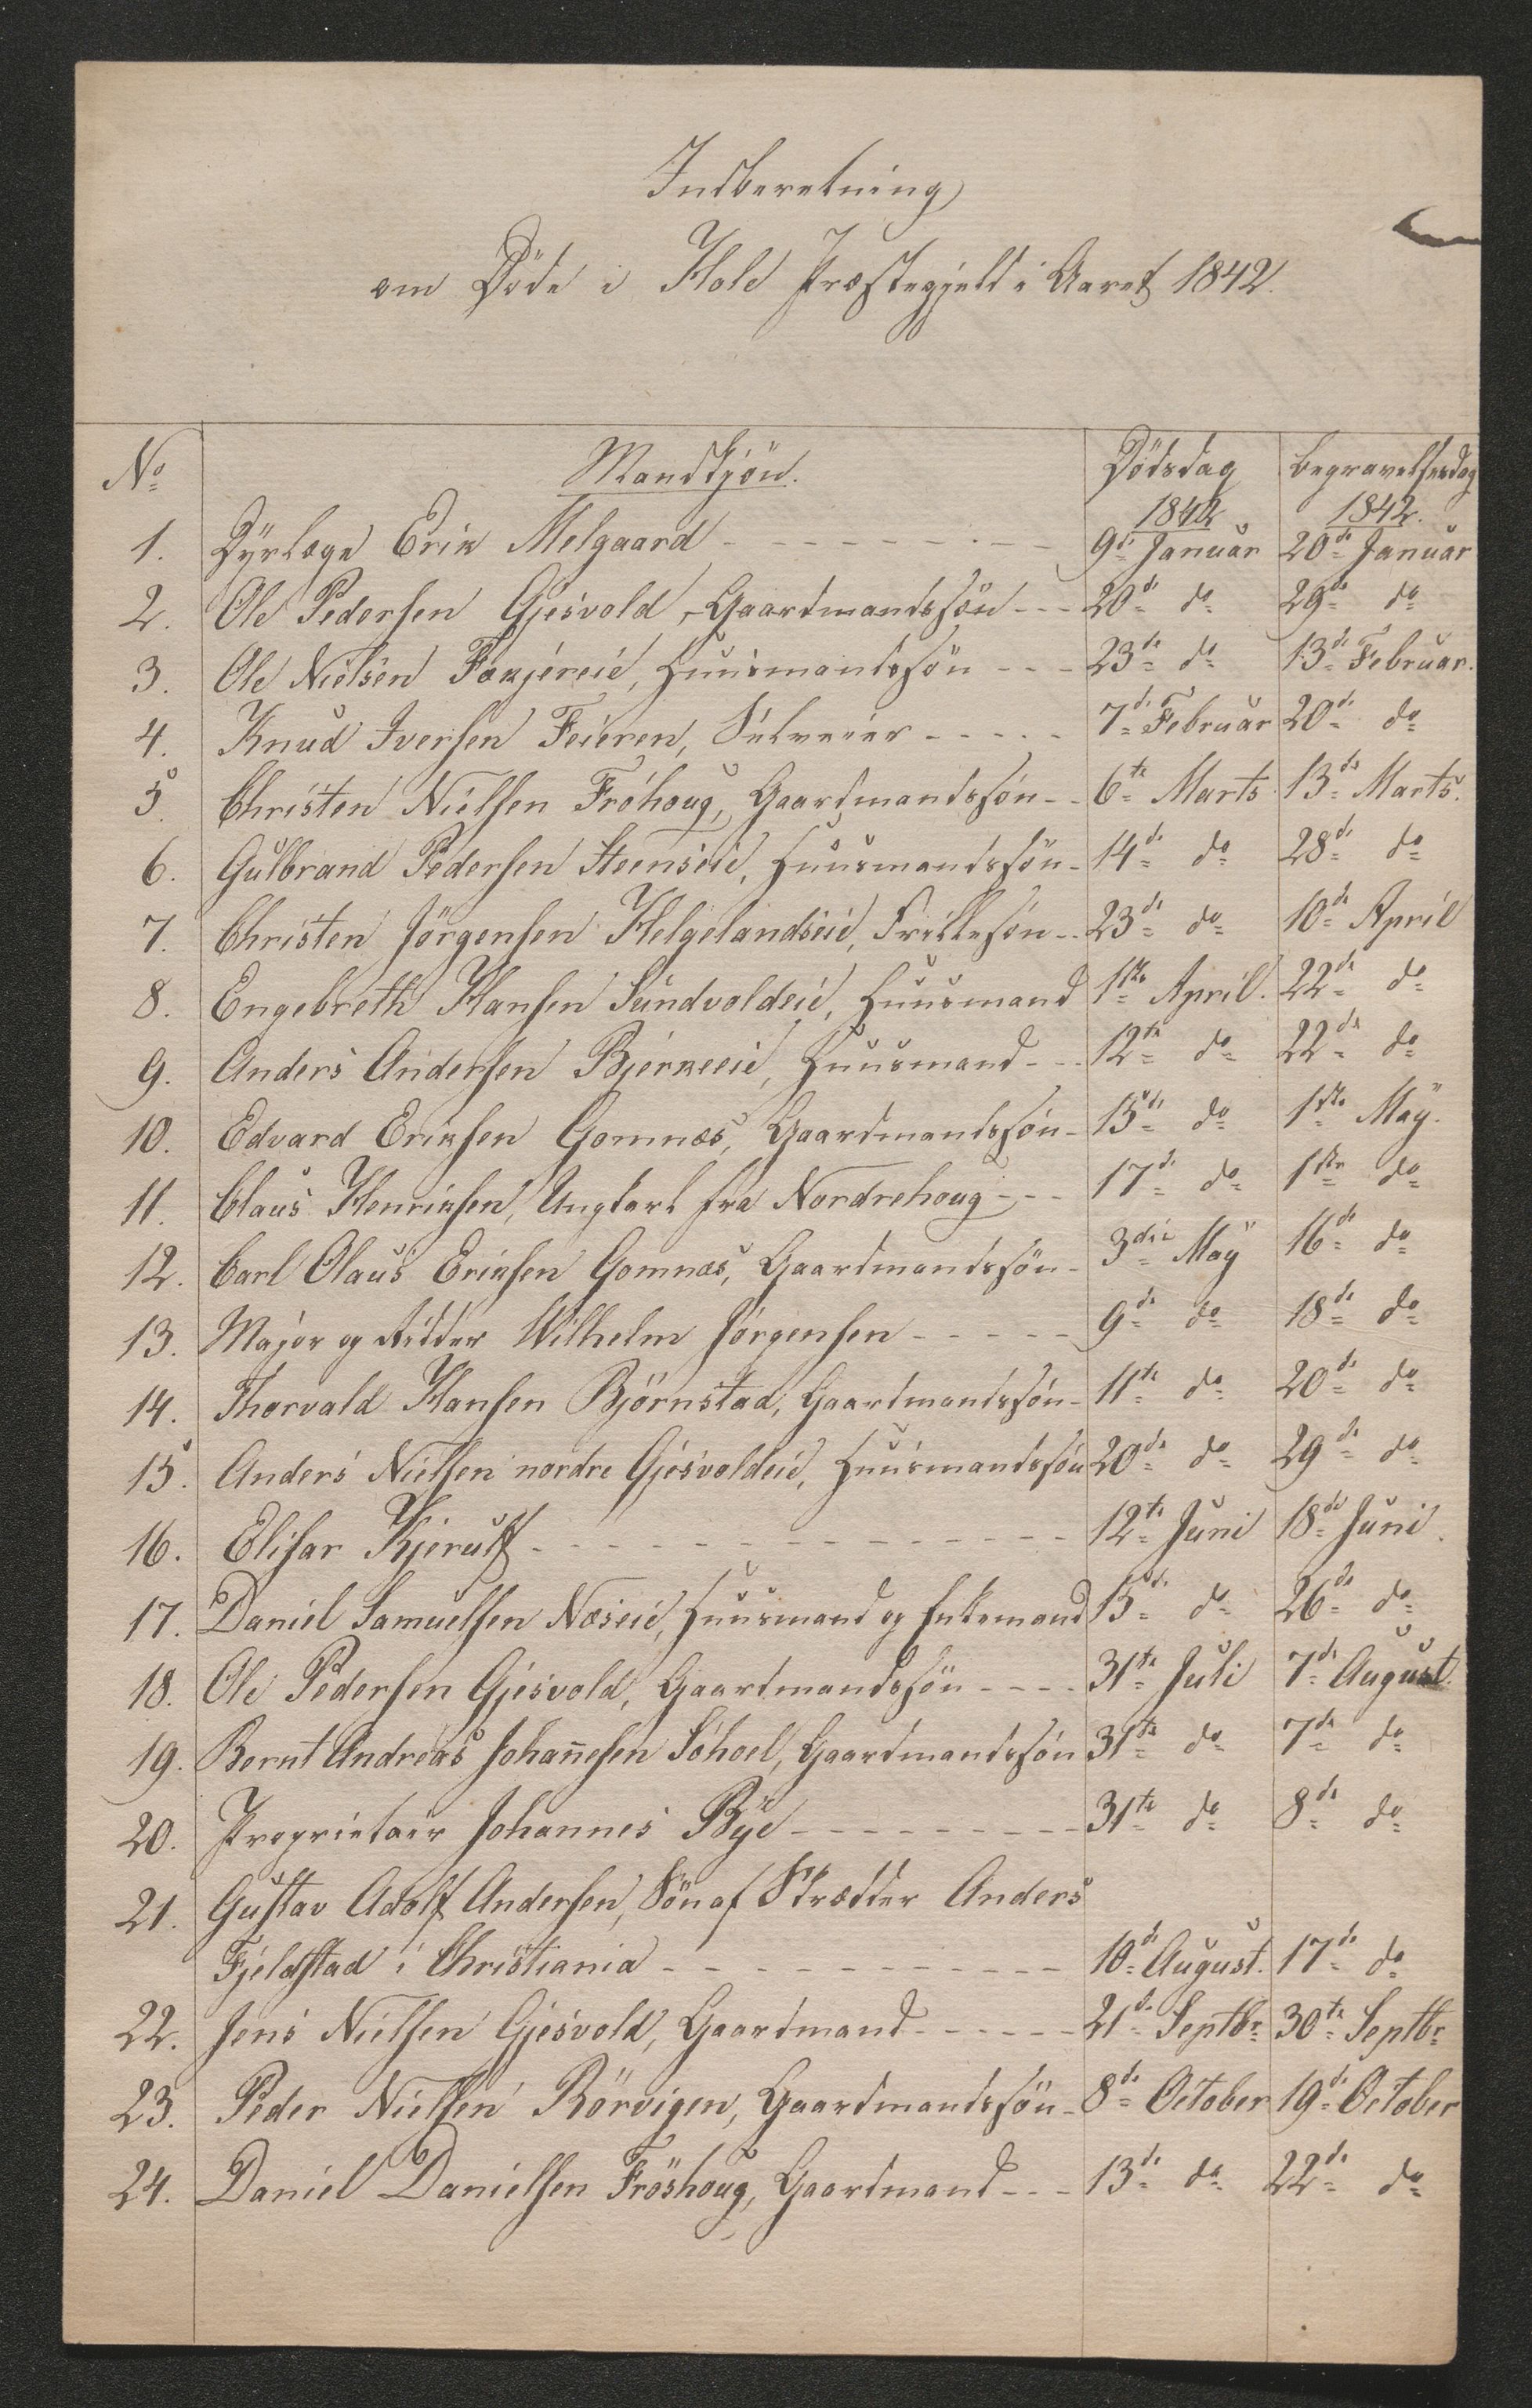 Indberetning
om Döde i Hole Præstegjeld i Aaret 1842.
No Mandkjön. Dödsdag Begravelsesdag
1842 1842.
1. Dyrlæge Erik Melgaard 9de Januar 20de Januar
2. Ole Pedersen Gjesvold, Gaardmandssön 20de do 29de do
3. Ole Nielsen Fækjereie, Huusmandssön 23de do 13de Februar.
4. Knud Iversen Feieren, Selveier 7de Februar 20de do
5. Christen Nielsen Fröhoug, Gaardmandssön 6te Marts 13de Marts.
6. Gulbrand Pedersen Steenseie, Huusmandssön 14de do 28de do
7. Christen Jörgensen Helgelandseie, Frillesön 23de do 10de April
8. Engebreth Hansen Sundvoldeie, Huusmand 1ste April. 22de do
9. Anders Andersen Bjerkeeie, Huusmand 12te do 22de do
10. Edvard Eriksen Gomnæs, Gaardmandssön 15de do 1ste Maÿ.
11. Claus Henriksen, Ungkarl fra Nordrehoug 17de do 1ste do
12. Carl Olaus Eriksen Gomnæs, Gaardmandssön 3die Maÿ 16de do
13. Major og Ridder Wilhelm Jörgensen 9de do 18de do
14. Thorvald Hansen Björnstad, Gaardmandssön 11te do 20de do
15. Anders Nielsen nordre Gjesvoldeie, Huusmandssön 20de do 29de do
16. Elisar Kjerulf 12te Juni 18de Juni.
17. Daniel Samuelsen Næseie, Huusmand og Enkemand 15de do 26de do
18. Ole Pedersen Gjesvold, Gaardmandssön 31te Juli 7de August.
19. Bernt Andreas Johan̅esen Söhoel, Gaardmandssön 31te do 7de do
20. Proprietair Johannes Bye 31te do 8de do
21. Gustav Adolf Andersen, Sön af Skrædder Anders
Fjeldstad i Christiania 10de August. 17de do
22. Jens Nielsen Gjesvold, Gaardmand 21de Septbr 30te Septbr
23. Peder Nielsen Rörvigen, Gaardmandssön 8de October 19de October
24. Daniel Danielsen Fröshoug, Gaardmand 13de do 22de do